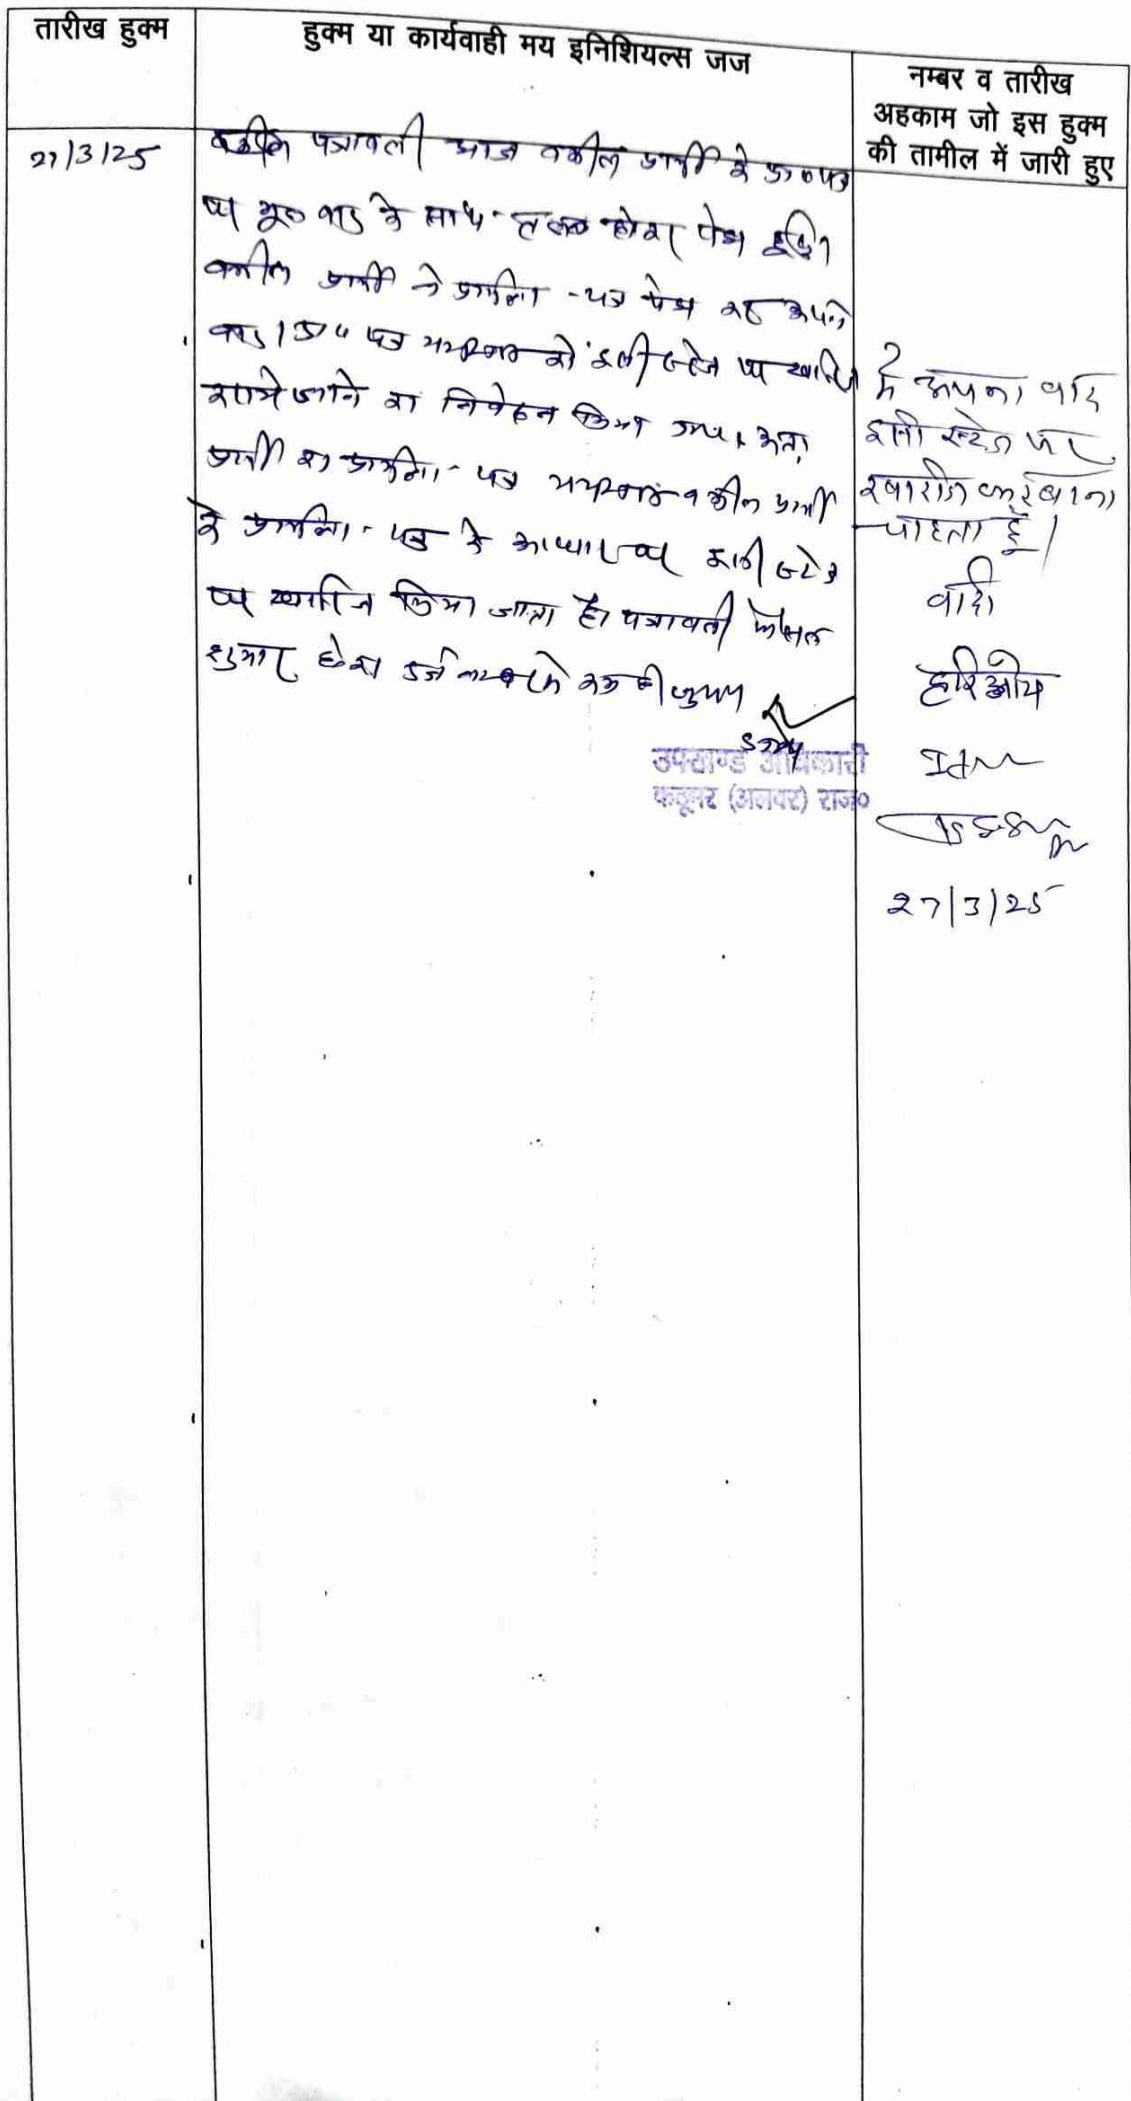 तारीख हुक्म
हुक्म या कार्यवाही मय इनिशियल्स जज
नम्बर व तारीख
अहकाम जो इस हुक्म
की तामील में जारी हुए
27/3/25
पत्रावली आज वकील प्रार्थी के प्रा०पत्र
पर मूल वाद के साथ तलब होकर पेश हुई।
वकील प्रार्थी ने प्रार्थना-पत्र पेश कर अपने
वाद / प्रा० पत्र को इसी स्टेज पर खारिज
किये जाने का निवेदन किया गया। अतः
प्रार्थी का प्रार्थना-पत्र वकील प्रार्थी
के प्रार्थना-पत्र के आधार पर इसी स्टेज
पर खारिज किया जाता है। पत्रावली फैसल
शुमार होकर दर्ज
उपखण्ड अधिकारी
कठूमर (अलवर) राज०
मैं अपना वाद
इसी स्टेज पर
खारीज करवाना
चाहता हूँ।
वादी
हरिओम
27/3/25